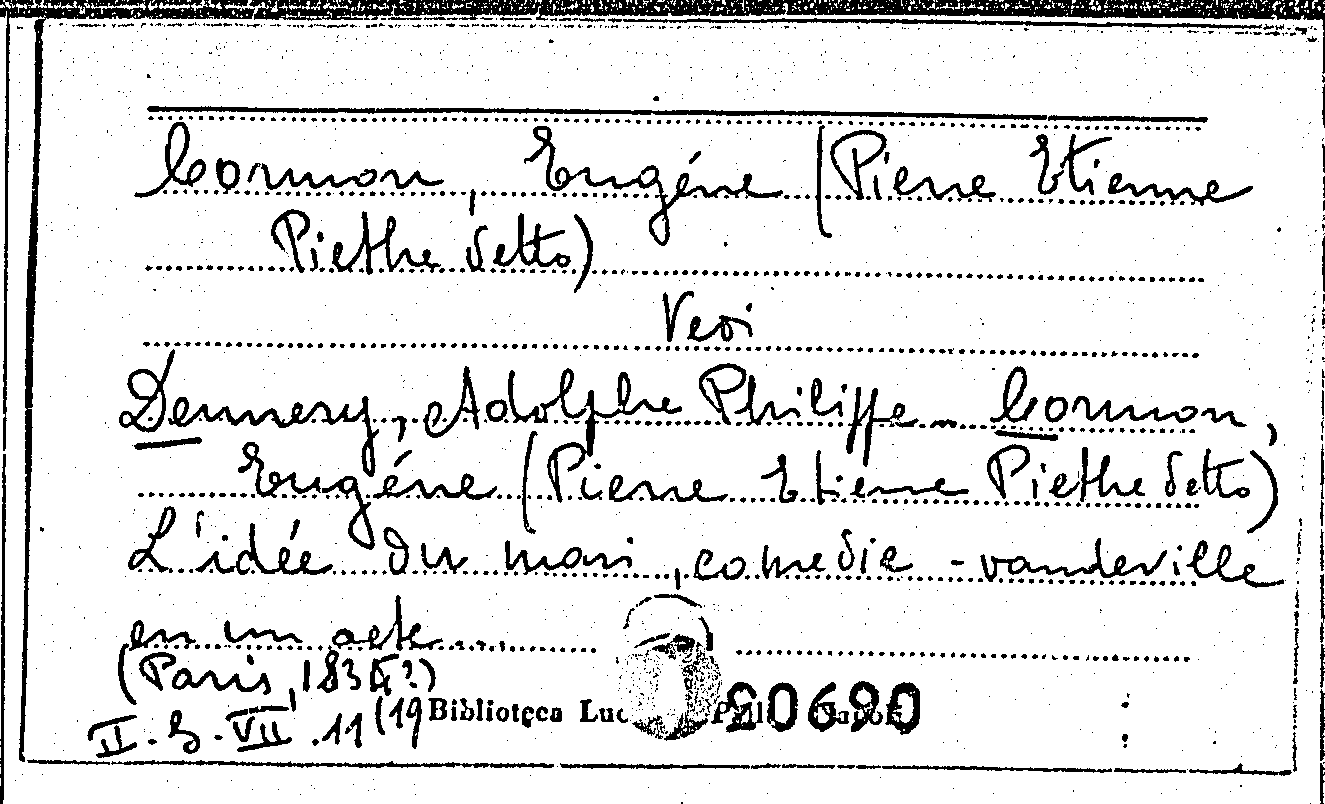 Cormon, Eugéne (Pierre Etienne
Piethe detto)
Vedi
Dennery, Adolphe Philippe - Cormon,
Eugéne (Pierre Etienne Piethe detto)
L'idée du mari, comedie - vaudeville
en un acte....
(Paris, 183
II. G. VII. 11 (19
Biblioteca 20690